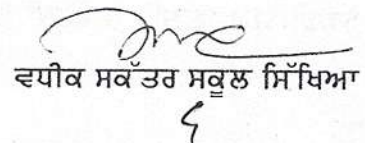 ਵਧੀਕ ਸਕੱਤਰ ਸਕੂਲ ਸਿੱਖਿਆ